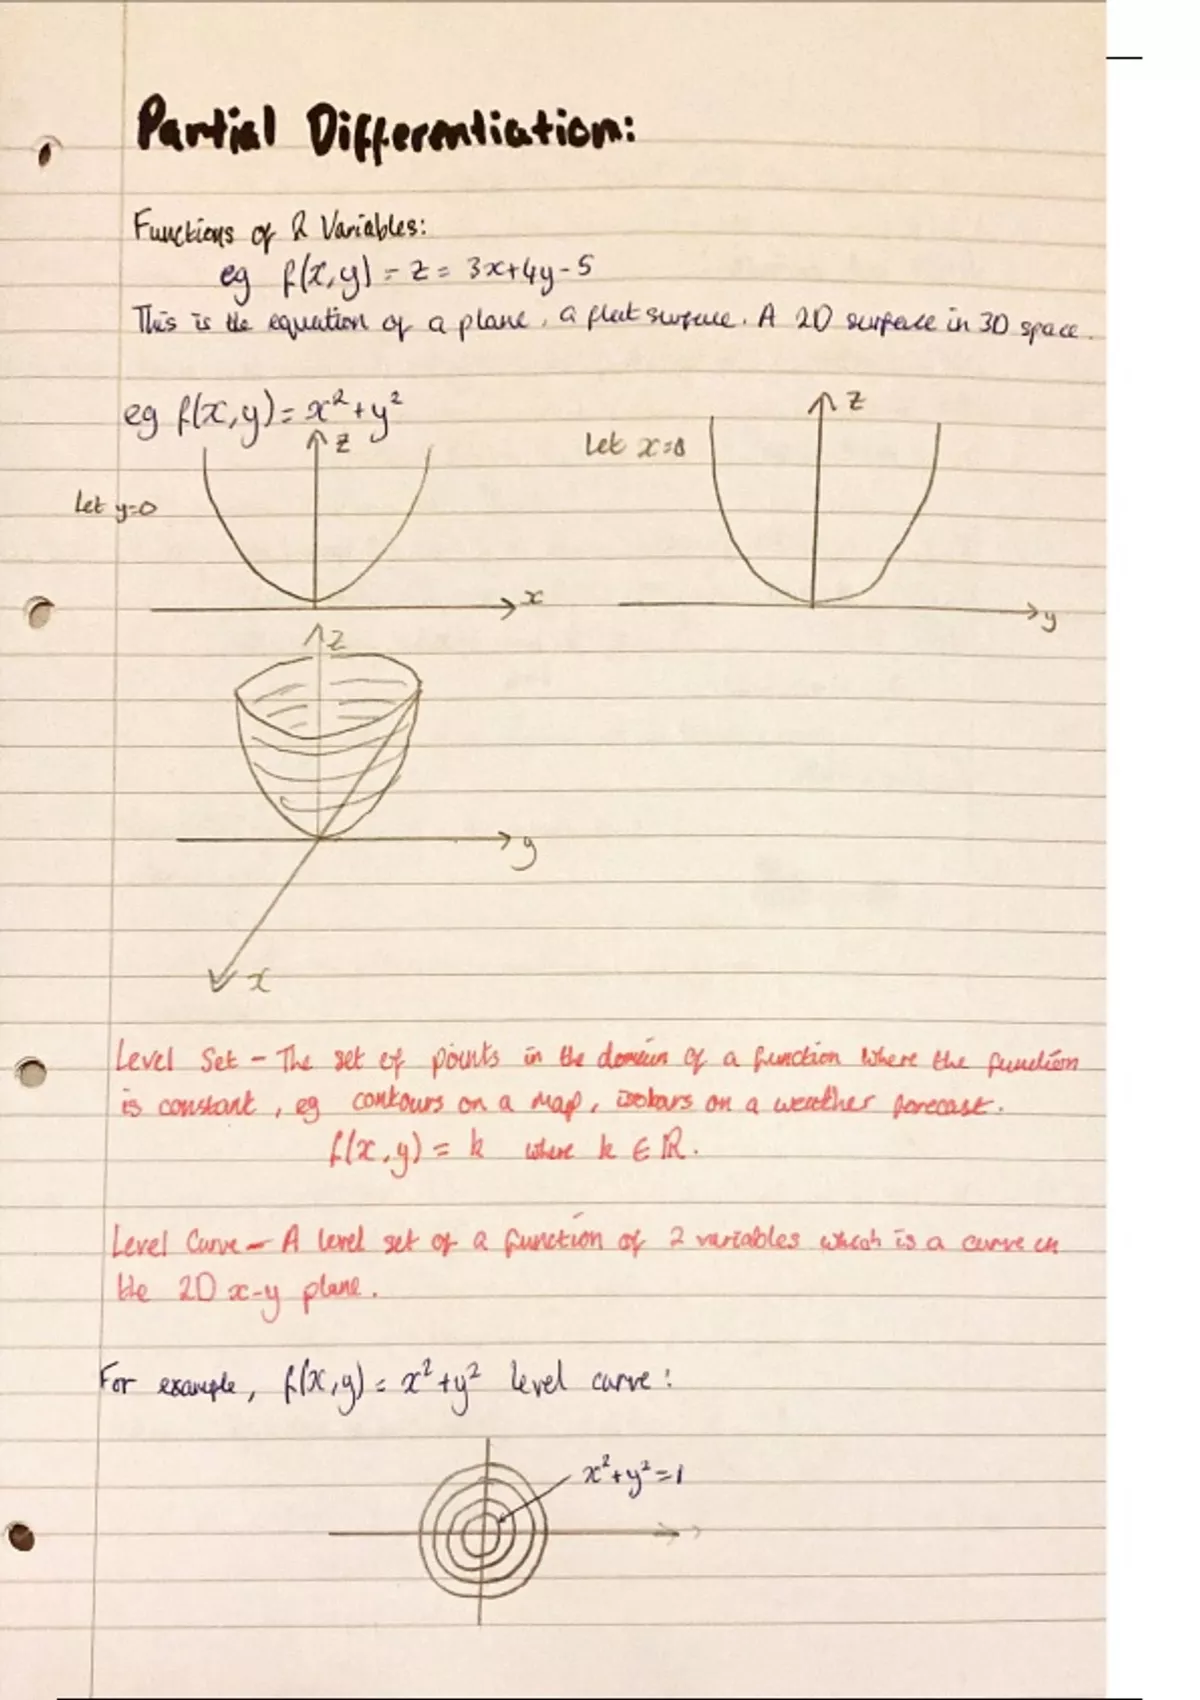 Partial Differentiation:
Functions of 2 Variables:
eg f(x,y) = z = 3x+4y-5
This is the equation of a plane, a flat surface. A 2D surface in 3D space.
eg f(x,y) = x²+y²
z
Let y=0
x
Let x=0
z
y
z
y
x
Level Set - The set of points in the domain of a function where the function
is constant, eg contours on a map, isobars on a weather forecast.
f(x,y) = k where k ∈ ℝ.
Level Curve - A level set of a function of 2 variables which is a curve in
the 2D x-y plane.
For example, f(x,y) = x²+y² level curve:
x²+y²=1